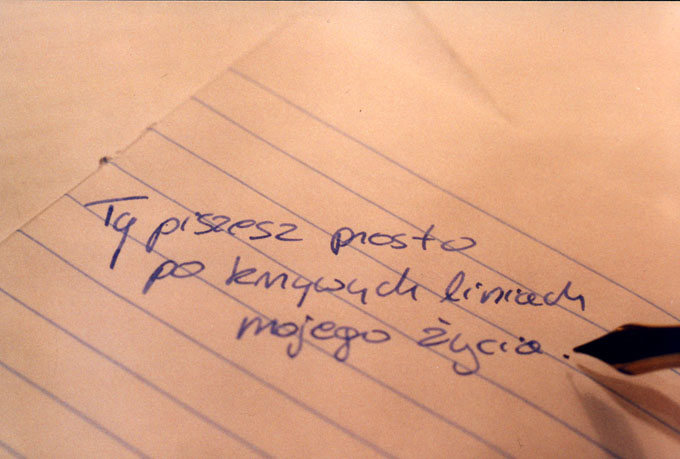 Ty piszesz prosto
po krzywych liniach
mojego życia.